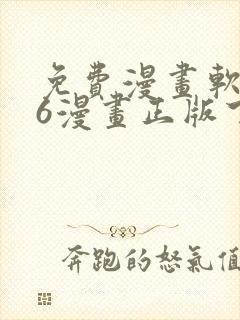 免費漫畫軟
6漫畫正版
奔跑的怒氣值